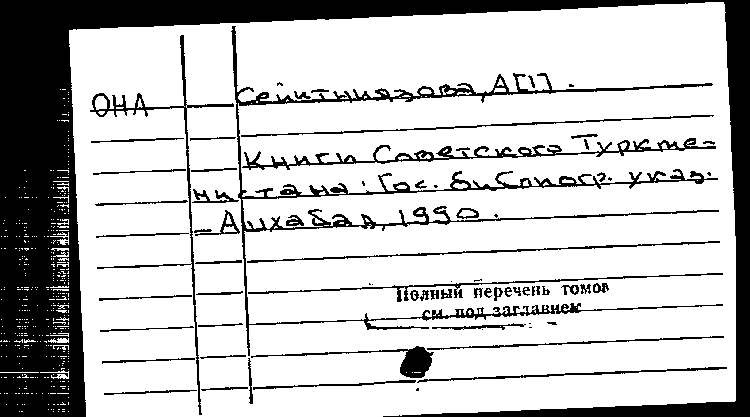 ОНА
Сейитниязова, А[1].
Книги Советского Туркме=
нистана: Гос. библиогр. указ.
– Ашхабад, 1990.
Полный перечень томов
см. под заглавием